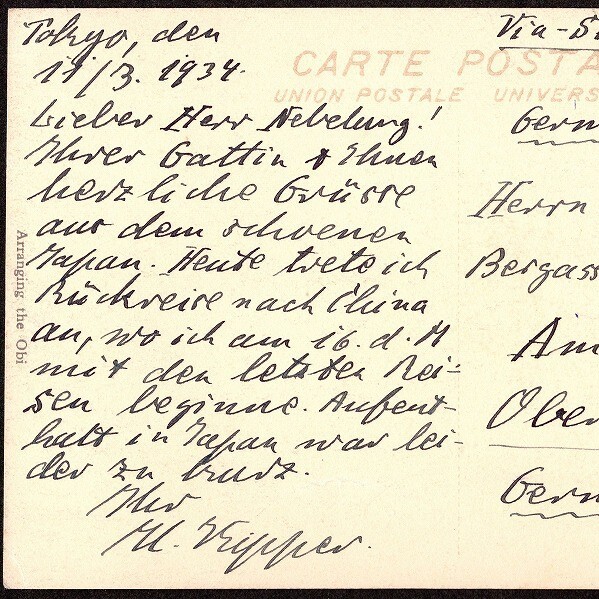 Tokyo, den
11/3. 1934.
Lieber Herr Nebelung!
Ihrer Gattin & Ihnen
herzliche Grüsse
aus dem schoenen
Japan. Heute trete ich
Rückreise nach China
an, wo ich am 16. d. M
mit den letzten Rei-
sen beginne. Aufent-
halt in Japan war lei-
der zu kurz.
Ihr
H. Kipper.
Arranging the Obi
CARTE POSTA
UNION POSTALE UNIVERS
Via-S
Germ
Herrn
Bergass
Am
Ober
Germ